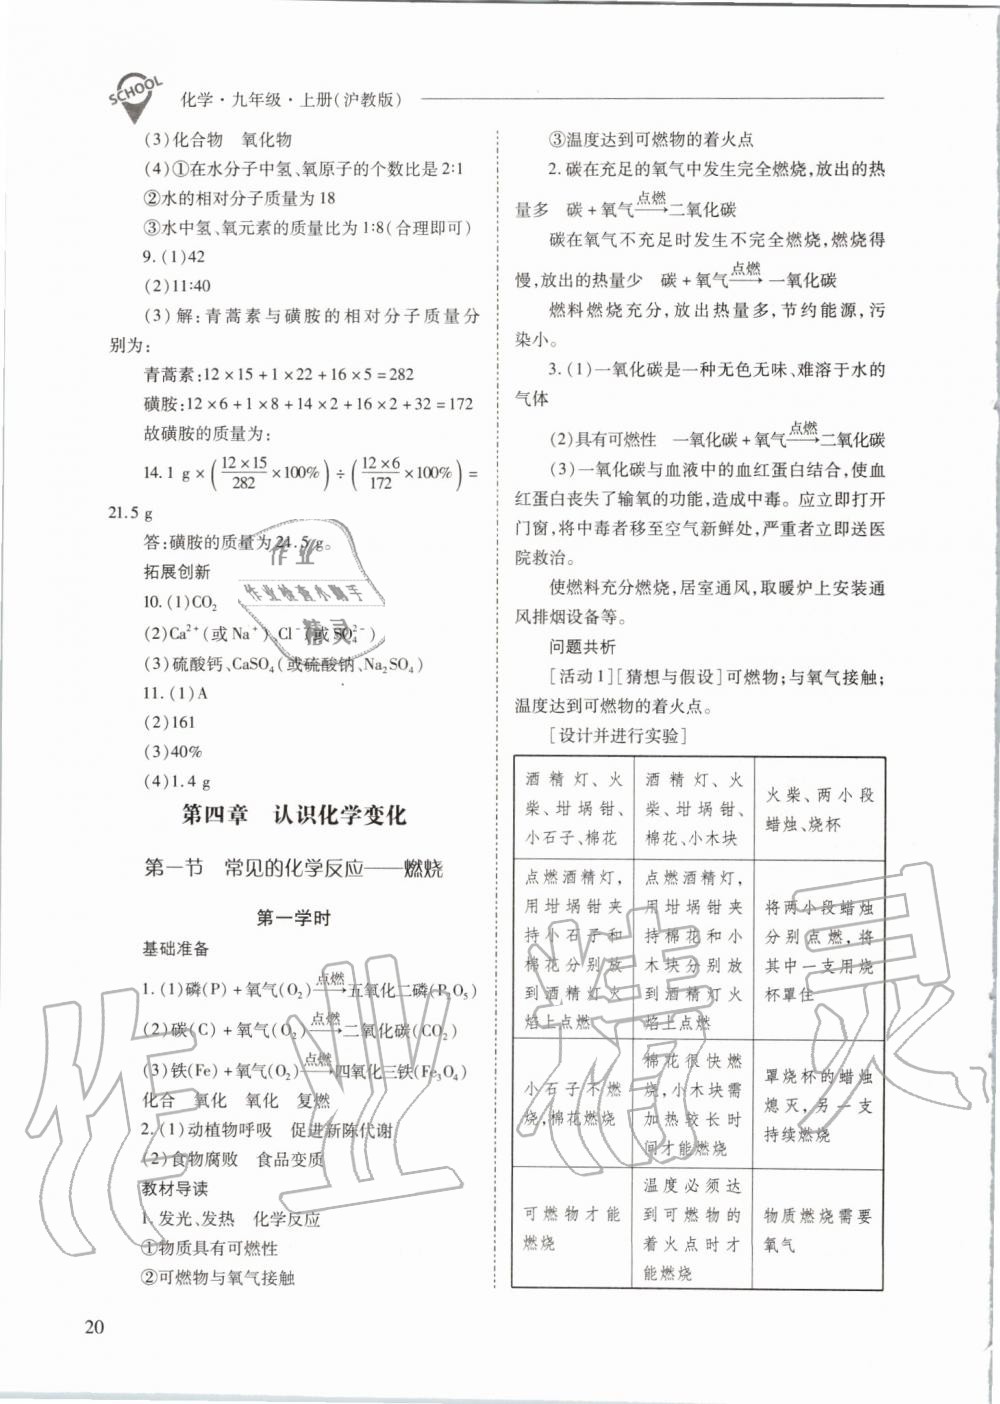 SCHOOL
化学·九年级·上册(沪教版)
(3)化合物 氧化物
(4)①在水分子中氢、氧原子的个数比是2:1
②水的相对分子质量为18
③水中氢、氧元素的质量比为1:8(合理即可)
9.(1)42
(2)11:40
(3)解:青蒿素与磺胺的相对分子质量分
别为:
青蒿素:12×15+1×22+16×5=282
磺胺:12×6+1×8+14×2+16×2+32=172
故磺胺的质量为:
14.1 g×(12×15/282×100%)÷(12×6/172×100%)=
21.5 g
答:磺胺的质量为21.5 g。
拓展创新
10.(1)CO₂
(2)Ca²⁺(或Na⁺)、Cl⁻(或SO₄²⁻)
(3)硫酸钙、CaSO₄(或硫酸钠、Na₂SO₄)
11.(1)A
(2)161
(3)40%
(4)1.4 g
第四章 认识化学变化
第一节 常见的化学反应——燃烧
第一学时
基础准备
1.(1)磷(P)+氧气(O₂)—点燃→五氧化二磷(P₂O₅)
(2)碳(C)+氧气(O₂)—点燃→二氧化碳(CO₂)
(3)铁(Fe)+氧气(O₂)—点燃→四氧化三铁(Fe₃O₄)
化合 氧化 氧化 复燃
2.(1)动植物呼吸 促进新陈代谢
(2)食物腐败 食品变质
教材导读
1.发光、发热 化学反应
①物质具有可燃性
②可燃物与氧气接触
③温度达到可燃物的着火点
2.碳在充足的氧气中发生完全燃烧,放出的热
量多 碳+氧气—点燃→二氧化碳
碳在氧气不充足时发生不完全燃烧,燃烧得
慢,放出的热量少 碳+氧气—点燃→一氧化碳
燃料燃烧充分,放出热量多,节约能源,污
染小。
3.(1)一氧化碳是一种无色无味、难溶于水的
气体
(2)具有可燃性 一氧化碳+氧气—点燃→二氧化碳
(3)一氧化碳与血液中的血红蛋白结合,使血
红蛋白丧失了输氧的功能,造成中毒。应立即打开
门窗,将中毒者移至空气新鲜处,严重者立即送医
院救治。
使燃料充分燃烧,居室通风,取暖炉上安装通
风排烟设备等。
问题共析
[活动1][猜想与假设]可燃物;与氧气接触;
温度达到可燃物的着火点。
[设计并进行实验]
酒精灯、火
柴、坩埚钳、
小石子、棉花
酒精灯、火
柴、坩埚钳、
棉花、小木块
火柴、两小段
蜡烛、烧杯
点燃酒精灯,
用坩埚钳夹
持小石子和
棉花分别放
到酒精灯火
焰上点燃
点燃酒精灯,
用坩埚钳夹
持棉花和小
木块分别放
到酒精灯火
焰上点燃
将两小段蜡烛
分别点燃,将
其中一支用烧
杯罩住
小石子不燃
烧,棉花燃烧
棉花很快燃
烧,小木块需
加热较长时
间才能燃烧
罩烧杯的蜡烛
熄灭,另一支
持续燃烧
可燃物才能
燃烧
温度必须达
到可燃物的
着火点时才
能燃烧
物质燃烧需要
氧气
20
作业
作业检查小助手
精灵
作业精灵